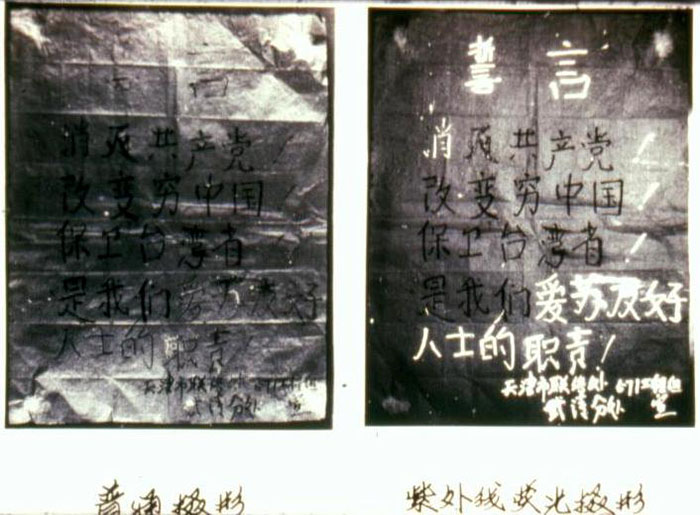 言
消灭共产党!
改变穷中国!
保卫台湾者
是我们爱苏友好
人士的职责!
天津市联络处 671工程组
武清分处 宣
誓言
消灭共产党!
改变穷中国!
保卫台湾者!
是我们爱苏友好
人士的职责!
天津市联络处 671工程组
武清分处 宣
普通摄影
紫外线荧光摄影